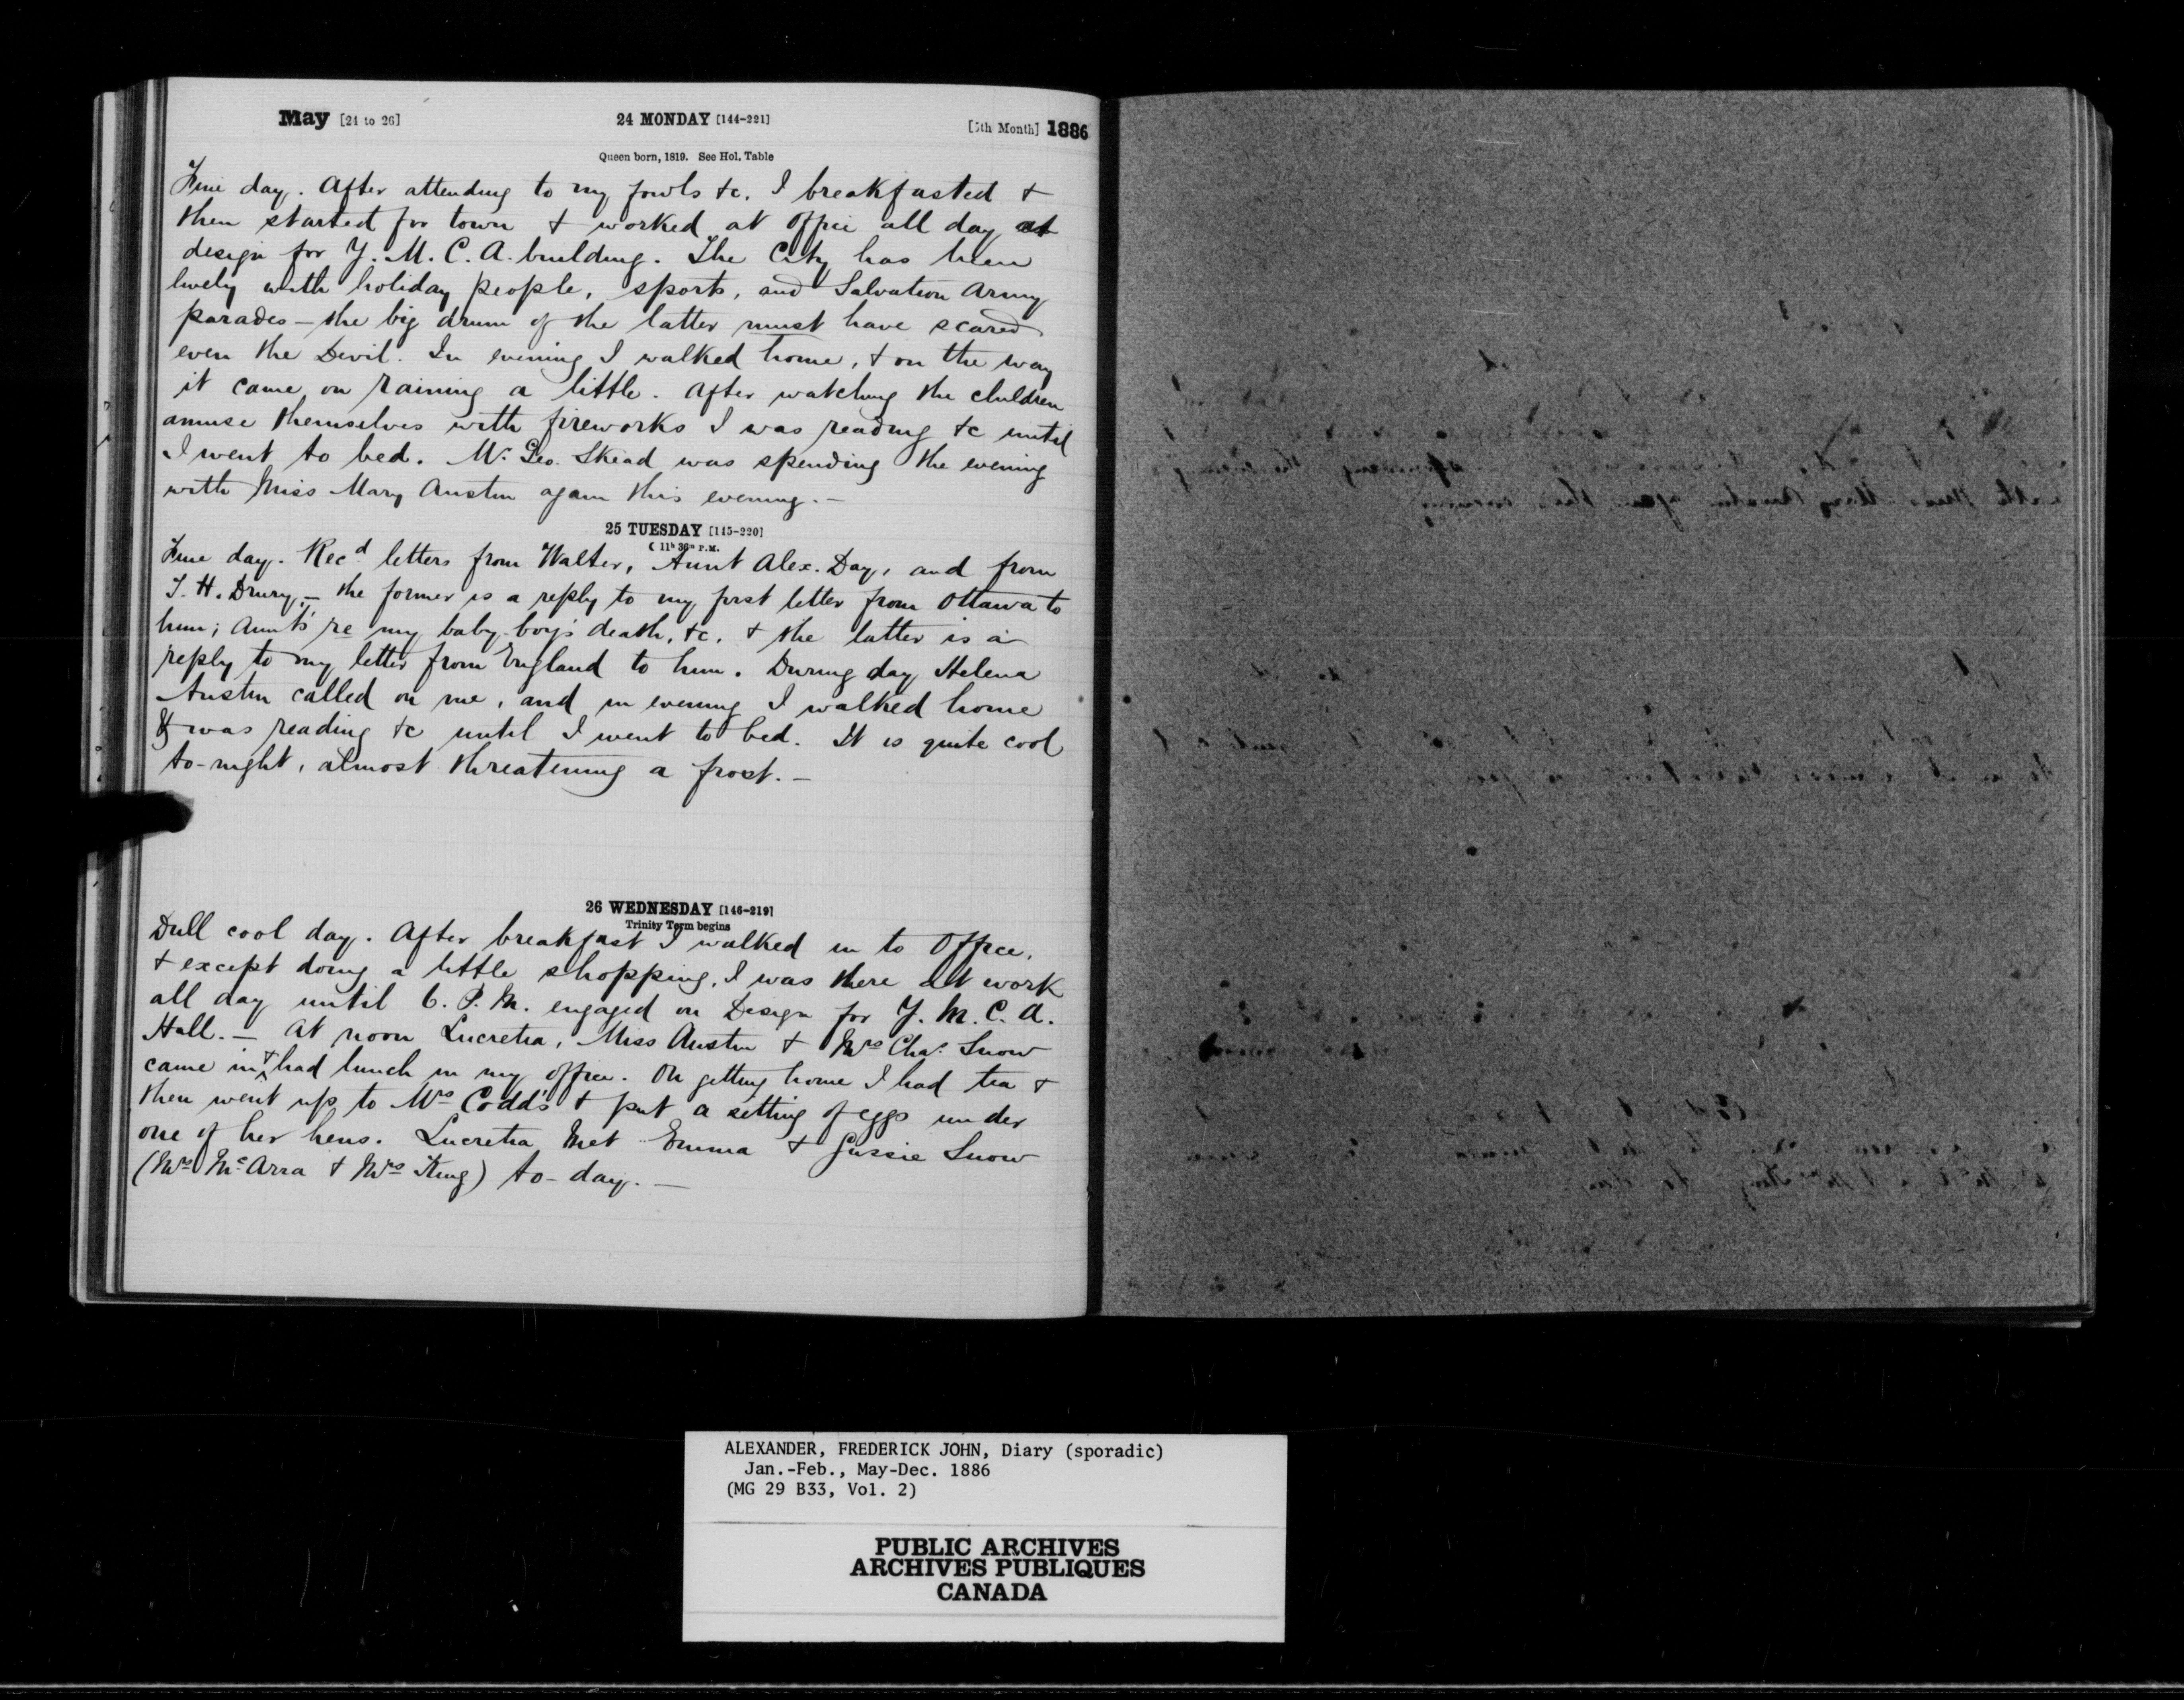 May [24 to 26] 24 MONDAY [144-221] [5th Month] 1886
Queen born, 1819. See Hol. Table
Fine day. After attending to my fowls &c. I breakfasted &
then started for town & worked at office all day at
design for Y. M. C. A. building. The City has been
lively with holiday people, sports, and Salvation Army
parades - the big drum of the latter must have scared
even the Devil. In evening I walked home, & on the way
it came on raining a little. After watching the children
amuse themselves with fireworks I was reading &c until
I went to bed. Mr. Geo. Skead was spending the evening
with Miss Mary Austin again this evening. -
25 TUESDAY [145-220]
☾ 11h 36m P.M.
Fine day. Recd. letters from Walter, Aunt Alex. Day, and from
T. H. Drury, - the former is a reply to my first letter from Ottawa to
him; Aunt's re my baby-boy's death, &c. & the latter is a
reply to my letter from England to him. During day Helena
Austin called on me, and in evening I walked home
& was reading &c until I went to bed. It is quite cool
to-night, almost threatening a frost. -
26 WEDNESDAY [146-219]
Trinity Term begins
Dull cool day. After breakfast I walked in to Office,
& except doing a little shopping, I was there at work
all day until 6. P. M. engaged on Design for Y. M. C. A.
Hall. - At noon Lucretia, Miss Austin & Mrs Chas. Snow
came in & had lunch in my office. On getting home I had tea &
then went up to Mrs Codd's & put a setting of eggs under
one of her hens. Lucretia met Emma & Gussie Snow
(Mrs McArra & Mrs King) to-day. -
ALEXANDER, FREDERICK JOHN, Diary (sporadic)
Jan.-Feb., May-Dec. 1886
(MG 29 B33, Vol. 2)
PUBLIC ARCHIVES
ARCHIVES PUBLIQUES
CANADA